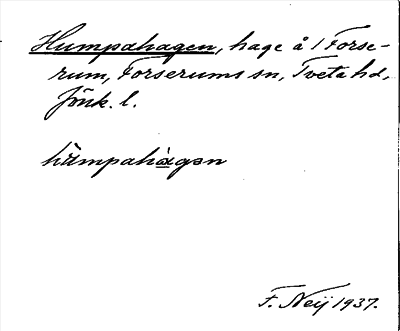 Humpahagen, hage å 1 Forse-
rum, Forserums sn, Tveta hd,
Jönk. l.
hùmpahàgən
F. Neij 1937.